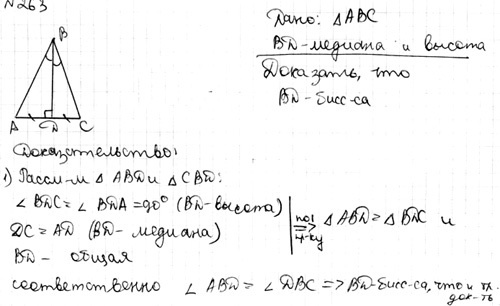 N263
Дано: △ABC
BD-медиана и высота
Доказать, что
BD-бисс-са
B
A D C
Доказательство:
1) Рассм-м △ ABD и △ CBD:
∠ BDC = ∠ BDA = 90° (BD-высота)
DC = AD (BD-медиана)
BD - общая
по 1 пр-ку ⇒ △ ABD = △ BDC и
соответственно ∠ ABD = ∠ DBC => BD-бисс-са, что и тр. док-ть